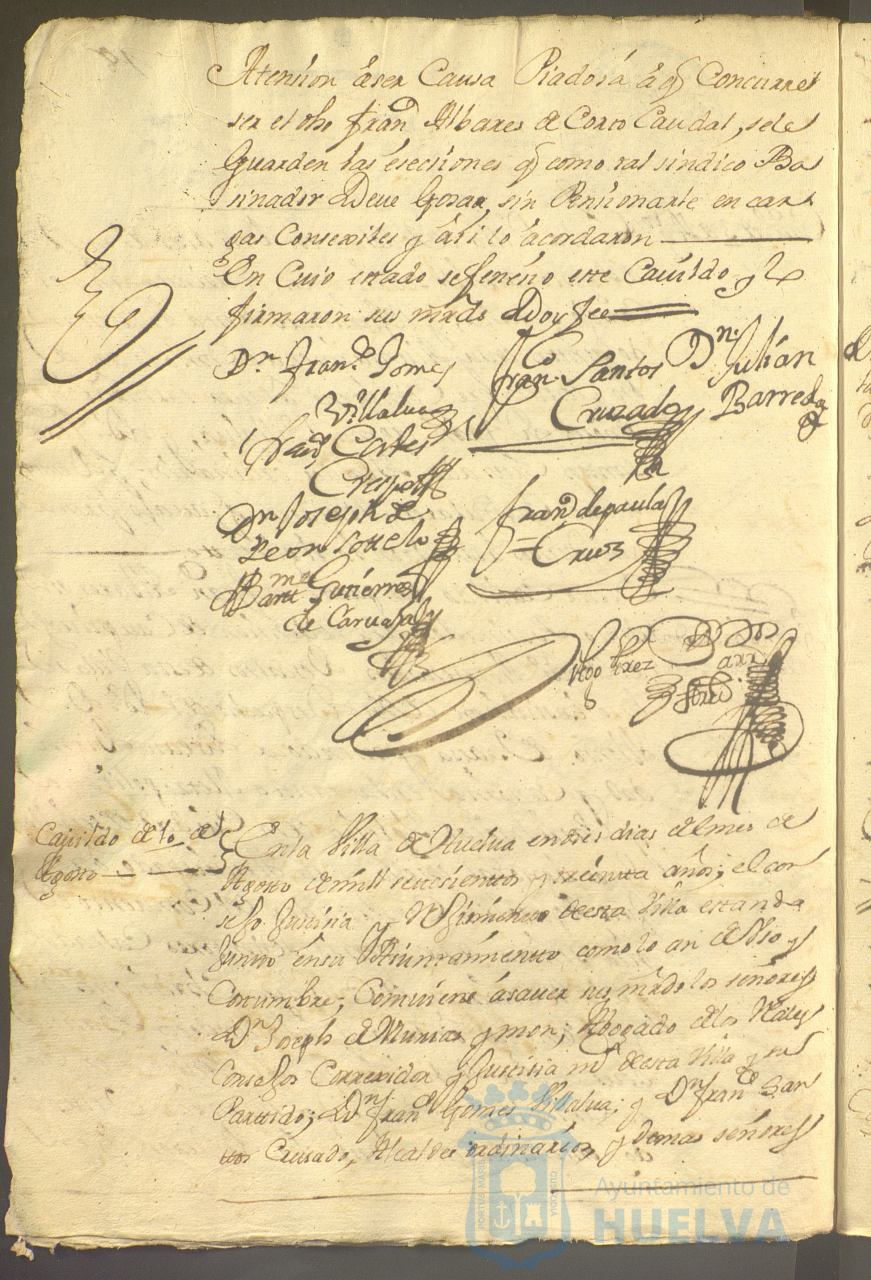 Atension àser Causa Piadosa à q̃ Concurre
ser el dho fran.co Albares de Corto Caudal, sele
Guarden las esecsiones q̃ como tal sindico Ba
sinador Deve Gosar, sin Pensionarle en car
gas Consexiles y àsi lo àcordaron
En Cuio estado sefeneció este Cavildo y lo
firmaron sus mrds Doy fee
Dn. Fran.co Gomes
Villalva
Fran.co Santos
Cruzado
Dn. Julián
Barreda
Fran.co Cortes
Crespo
Dn Joseph de
Leon Sotelo
fran.co de paula
Cruz
Bartme Gutierres
de Carvajal
Perez
Cavildo de 10 de
Agosto
En la Villa de Huelva en dies dias del mes de
Agosto de mill setesientos y sesenta años; el con
sejo Justisia y Rejimiento de esta Villa estando
Junto en su Aiuntamientto como lo an de Uso y
Costumbre, Combiene àsaver sus mrds los señores
Dn Joseph de Murias y mon; Abogado de los Rales
Consejos Correxidor y Justisia mr de esta Villa y su
Parttido; Dn fran.co Gomes Villalva; y Dn fran.co San
ttos Crusado, Alcaldes ordinarios y demas señores
Ayuntamiento de
HUELVA